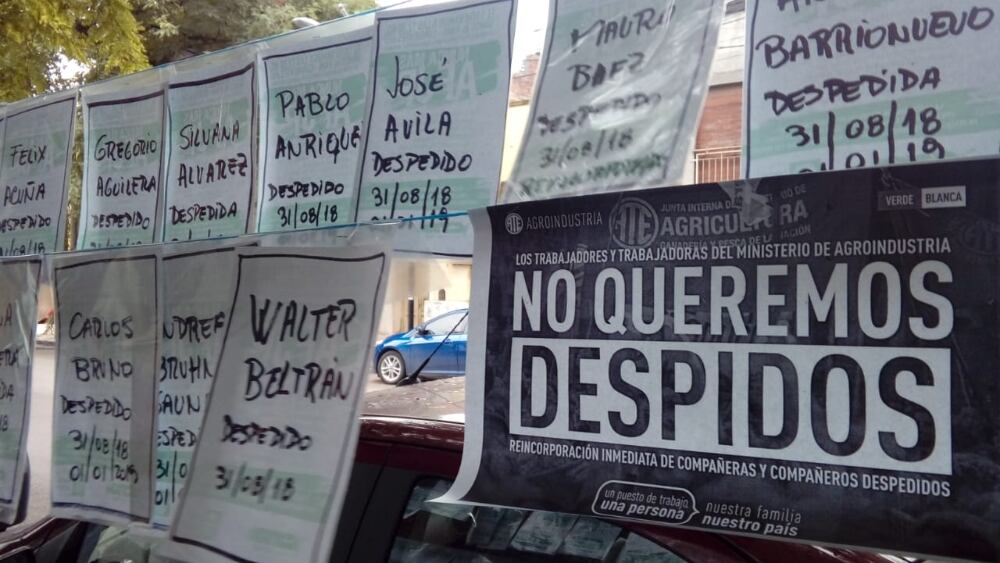 FELIX
ACUÑA
DESPEDIDO
31/08/18
GREGORIO
AGUILERA
DESPEDIDO
SILVANA
ALVAREZ
DESPEDIDA
PABLO
ANRIQUE
DESPEDIDO
31/08/18
JOSÉ
AVILA
DESPEDIDO
31/08/18
01/01/19
MAURO
BAEZ
DESPEDIDO
31/08/18
BARRIONUEVO
DESPEDIDA
31/08/18
01/01/19
CARLOS
BRUNO
DESPEDIDO
31/08/18
01/01/2019
BRUHN
WALTER
BELTRÁN
DESPEDIDO
31/08/18
ATE AGROINDUSTRIA
ATE JUNTA INTERNA DE
AGRICULTURA
GANADERÍA Y PESCA DE LA NACIÓN
VERDE BLANCA
LOS TRABAJADORES Y TRABAJADORAS DEL MINISTERIO DE AGROINDUSTRIA
NO QUEREMOS
DESPIDOS
REINCORPORACIÓN INMEDIATA DE COMPAÑERAS Y COMPAÑEROS DESPEDIDOS
un puesto de trabajo,
una persona
nuestra familia
nuestro país